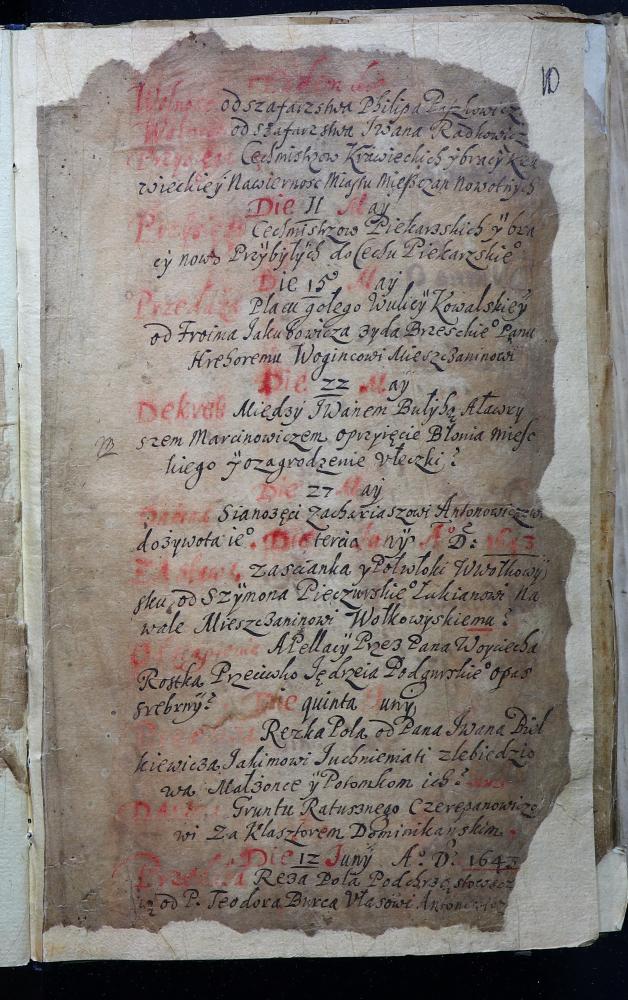 10
Wolność od szafarzstwa Philipa Paszkowicz
Wolność od szafarzstwa Iwana Radkowic
Przysięga Cechmistrzow Krawieckich y bracy Kra
wieckiey Nawierność Miastu Mieszczan Nowotnych
Die 11 May
Przysięga Cechmistrzow Piekarzskich ÿ bra
cy nowo Przÿbyłych do Cechu Piekarzskie°
Die 15° Maÿ
Przedaża Placu gołego Wulicÿ Kowalskieÿ
od Froima Jakubowicza zyda Brzeskie° Panu
Hrehoremu Wogincowi Mieszczaninowi
Die 22 Maÿ
Dekret Międzÿ Iwanem Bułyhą Aławry
szem Marcinowiczem oprzyięcie Błonia mieśc
kiego ÿ ozagrodzenie Vłeczki
Die 27 Maÿ
Sianozęci Zachariaszowi Antonowiczow
dożywota ie°. Die tercia Junÿ A° D: 1643
Zaścianka y Połwłoki Wwołkowÿ
sku, od Szÿmona Pieczurskie° Łukianowi Na
wale Mieszczaninowi Wołkowyskiemu
Apellacÿ Przez Pana Woyciecha
Rostka Przeciwko Jędrzeia Podgurskie° opas
srebrnÿ Die quinta Juny
Rezka Pola od Pana Iwana
kiewicza Jakimowi Juchniemati zlebiedzio
wa Małżonce ÿ Potomkom ich
Gruntu Ratusznego Czerepanowiczo
wi Za Klasztorem Dominikańskim.
Die 12 Junÿ A° D: 1643
Przedaża Reza Pola Podchrzc
od P. Teodora Burca Własowi